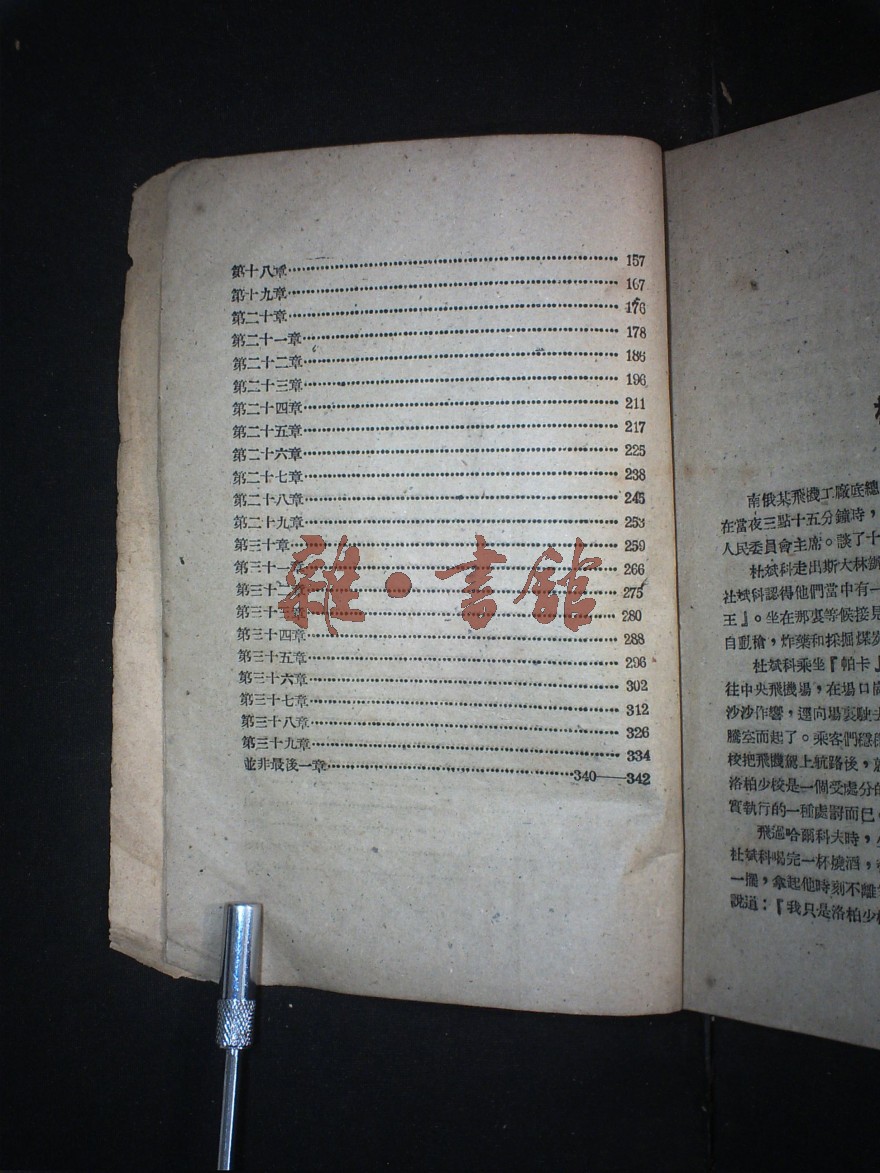 第十八章 157
第十九章 167
第二十章 176
第二十一章 178
第二十二章 186
第二十三章 196
第二十四章 211
第二十五章 217
第二十六章 225
第二十七章 238
第二十八章 245
第二十九章 253
第三十章 259
第三十一章 266
第三十二章 275
第三十三章 280
第三十四章 288
第三十五章 296
第三十六章 302
第三十七章 312
第三十八章 326
第三十九章 334
並非最後一章 340——342
雜·書館
南俄某飛機工廠底總
在當夜三點十五分鐘時，
人民委員會主席。談了十
杜斌科走出斯大林辦
杜斌科認得他們當中有一
王』。坐在那裏等候接見
自動槍，炸藥和採掘煤炭
杜斌科乘坐『帕卡
往中央飛機場，在場口
沙沙作響，逕向場裏駛去
騰空而起了。乘客們穩
校把飛機駕上航路後，
洛柏少校是一個受處分的
實執行的一種處罰而已
飛過哈爾科夫時，
杜斌科喝完一杯燒酒，
一擺，拿起他時刻不離
說道：『我只是洛柏少校